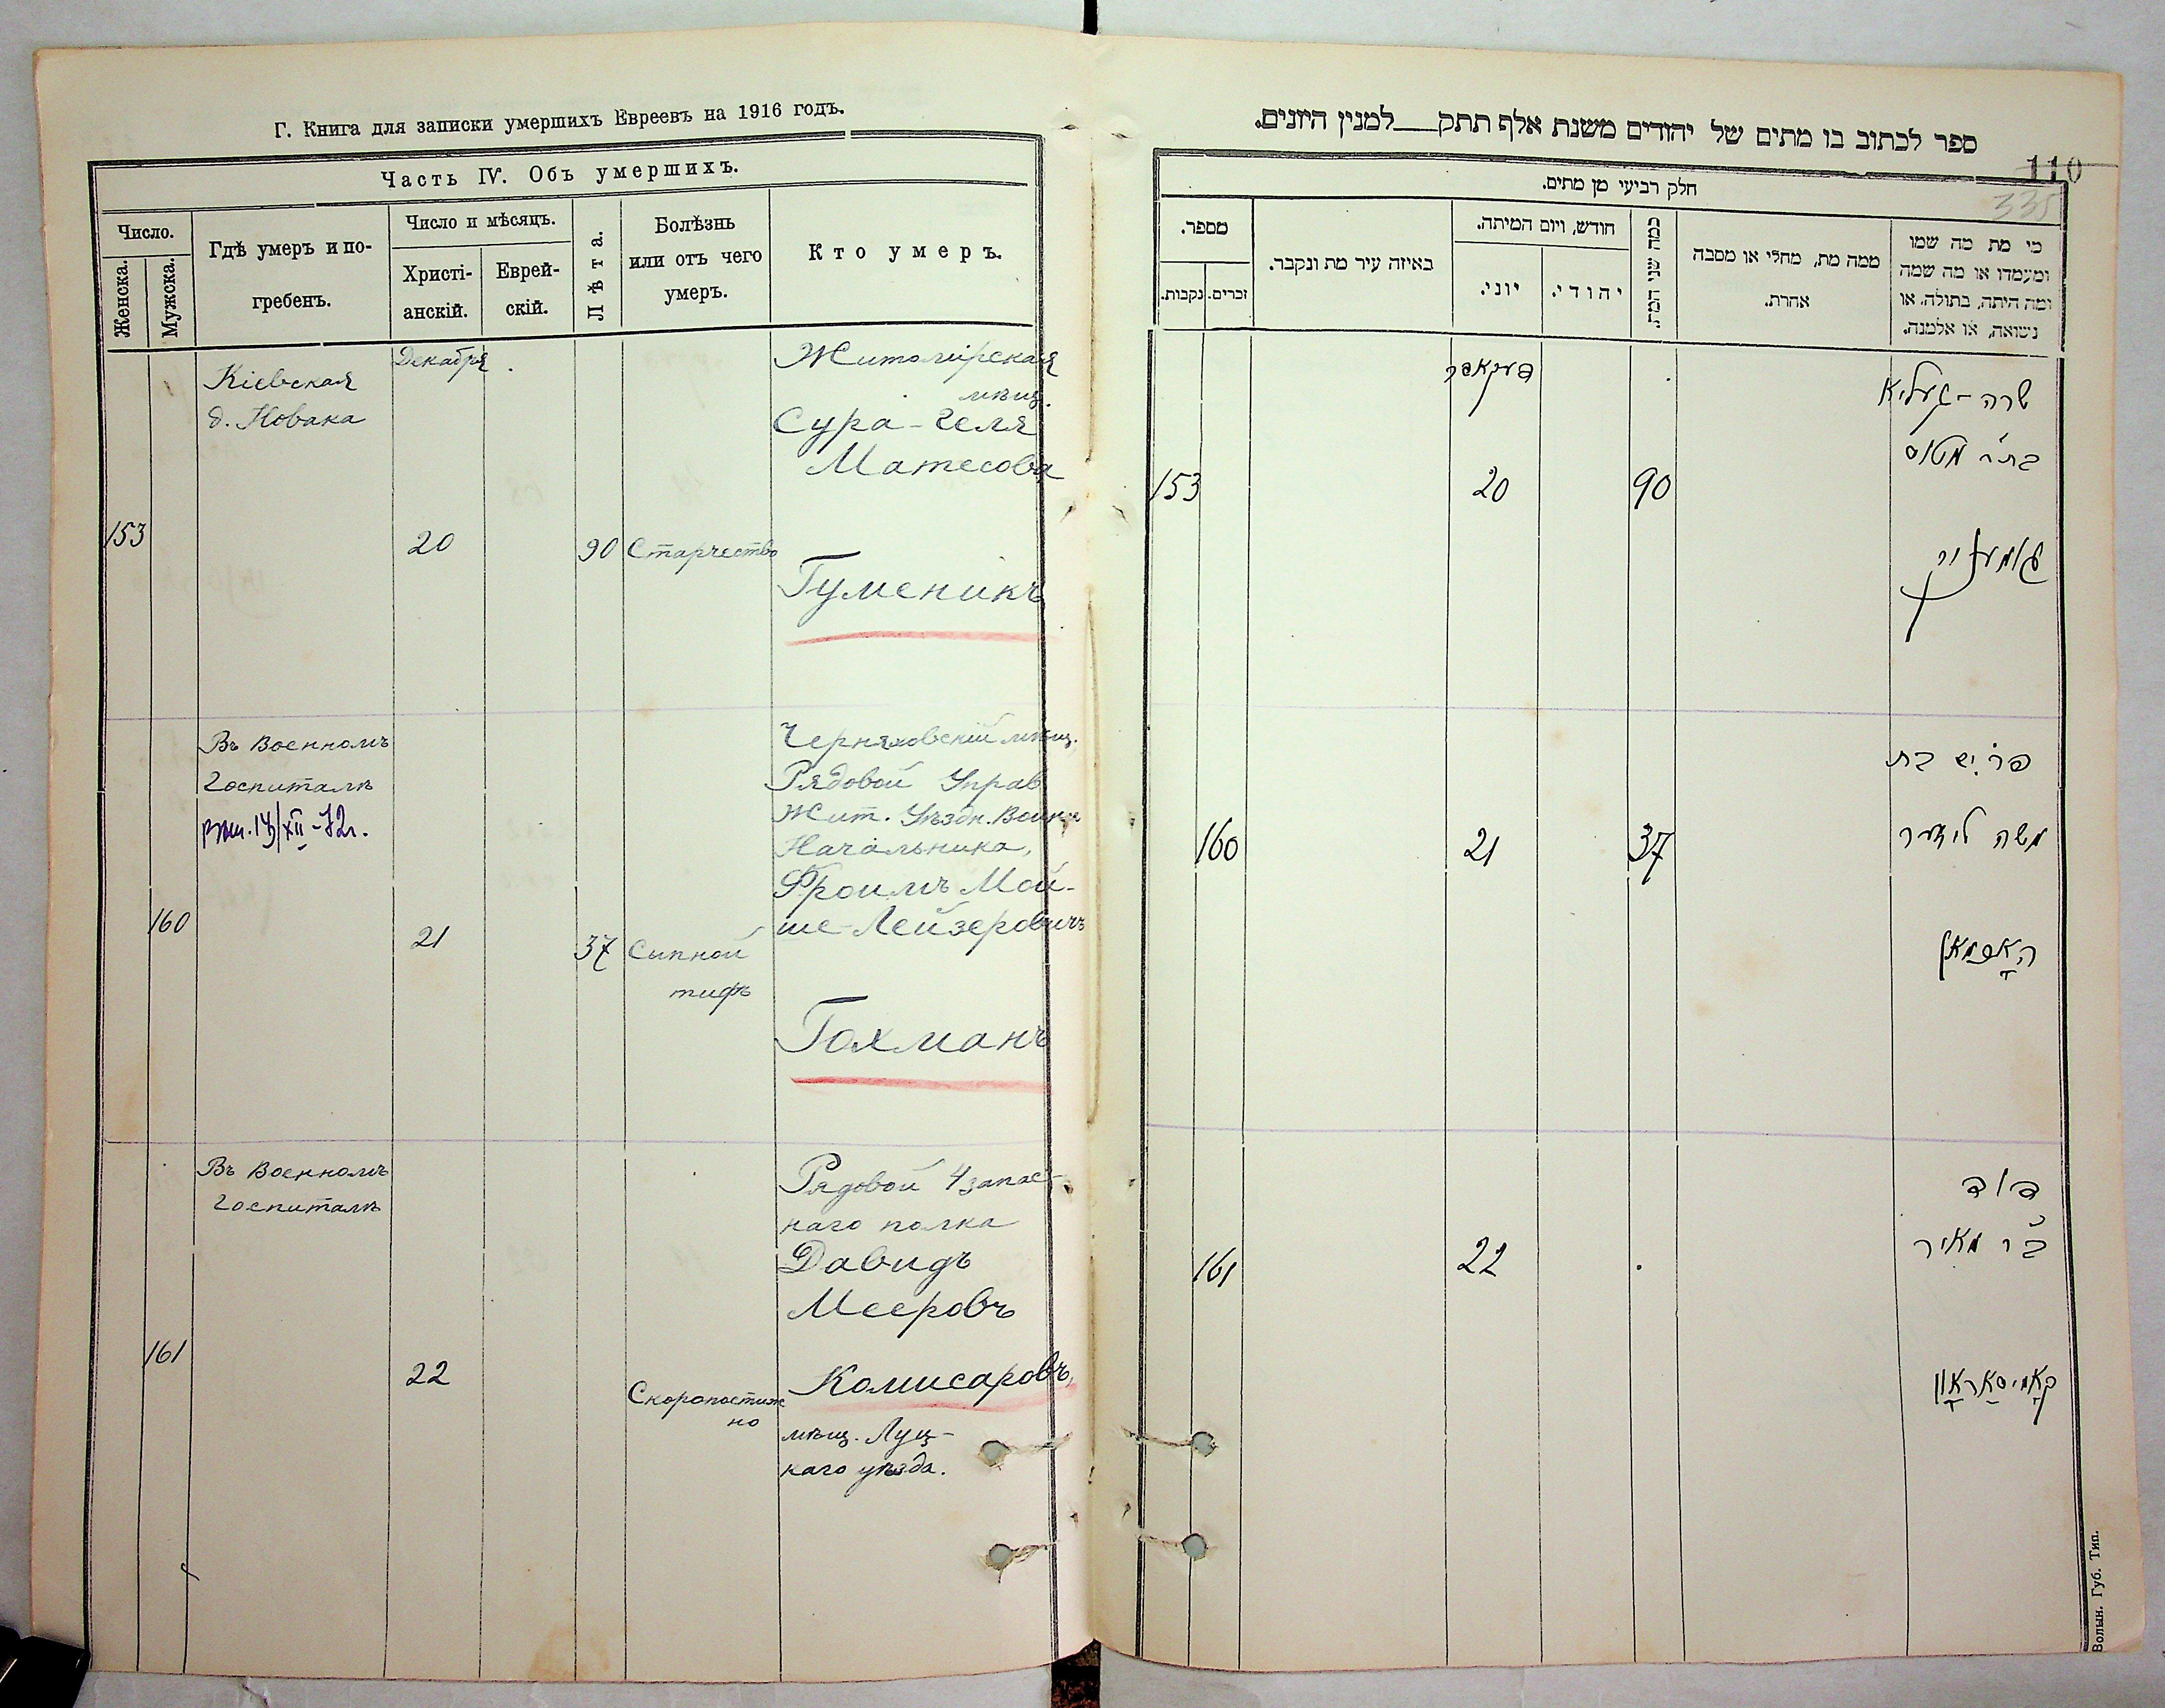 Г. Книга для записки умершихъ Евреевъ на 1916 годъ.
Часть IV. Объ умершихъ.
Число.
Женска.
Мужска.
Гдѣ умеръ и по-
гребенъ.
Число и мѣсяцъ.
Христі-
анскій.
Еврей-
скій.
Лѣта.
Болѣзнь
или отъ чего
умеръ.
Кто умеръ.
Декабря
Кіевская
д. Новака
153
20
90
Старчество
Житомірская
мѣщ.
Сура-Геля
Матесова
Гуменикъ
Въ Военномъ
Госпиталѣ
160
21
37
Сыпной
тифъ
Черняховскій мѣщ.
Рядовой Управ
Жит. Уѣздн. Воинск
Начальника,
Фроимъ Мой-
ше-Лейзеровичъ
Гохманъ
Въ Военномъ
Госпиталѣ
161
22
Скоропостиж
но
Рядовой 4 запас-
наго полка
Давидъ
Мееровъ
Комисаровъ,
мѣщ. Луц-
каго уѣзда.
ספר לכתוב בו מתים של יהודים משנת אלף תתק למנין היונים.
110
335
חלק רביעי מן מתים.
מספר.
נקבות.
זכרים.
באיזה עיר מת ונקבר.
חודש, ויום המיתה.
יוני.
יהודי.
כמה שני המת.
ממה מת, מחלי או מסבה
אחרת.
מי מת מה שמו
ומעמדו או מה שמה
ומה היתה, בתולה, או
נשואה, או אלמנה.
דעקאבר
153
20
90
שרה-געליא
בת"ר מטוס
160
21
37
משה לייזער
האָכמאן
161
22
דוד
ב"ר מאיר
קאָמיסאַראָוו
Волын. Губ. Тип.